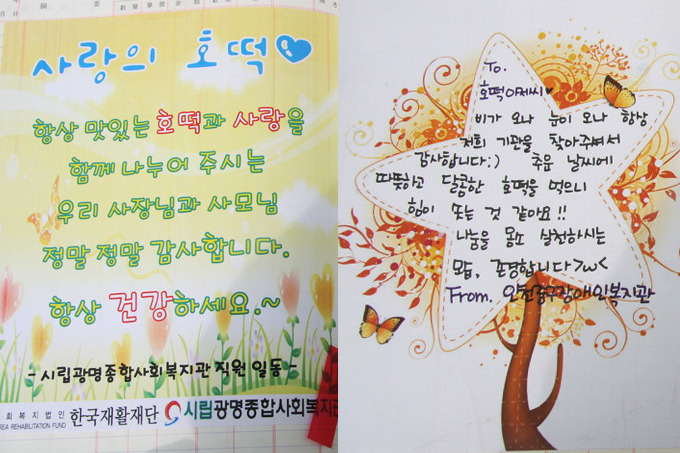 사랑의 호떡
항상 맛있는 호떡과 사랑을
함께 나누어 주시는
우리 사장님과 사모님
정말 정말 감사합니다.
항상 건강하세요.~
- 시립광명종합사회복지관 직원 일동 -
회복지법인 한국재활재단 시립광명종합사회복지관
REA REHABILITATION FUND
To.
호떡아저씨♥
비가 오나 눈이 오나 항상
저희 기관을 찾아주셔서
감사합니다:) 추운 날씨에
따뜻하고 달콤한 호떡을 먹으니
힘이 또는 것 같아요!!
나눔을 몸소 실천하시는
모습, 존경합니다>w<
From. 인천중구장애인복지관